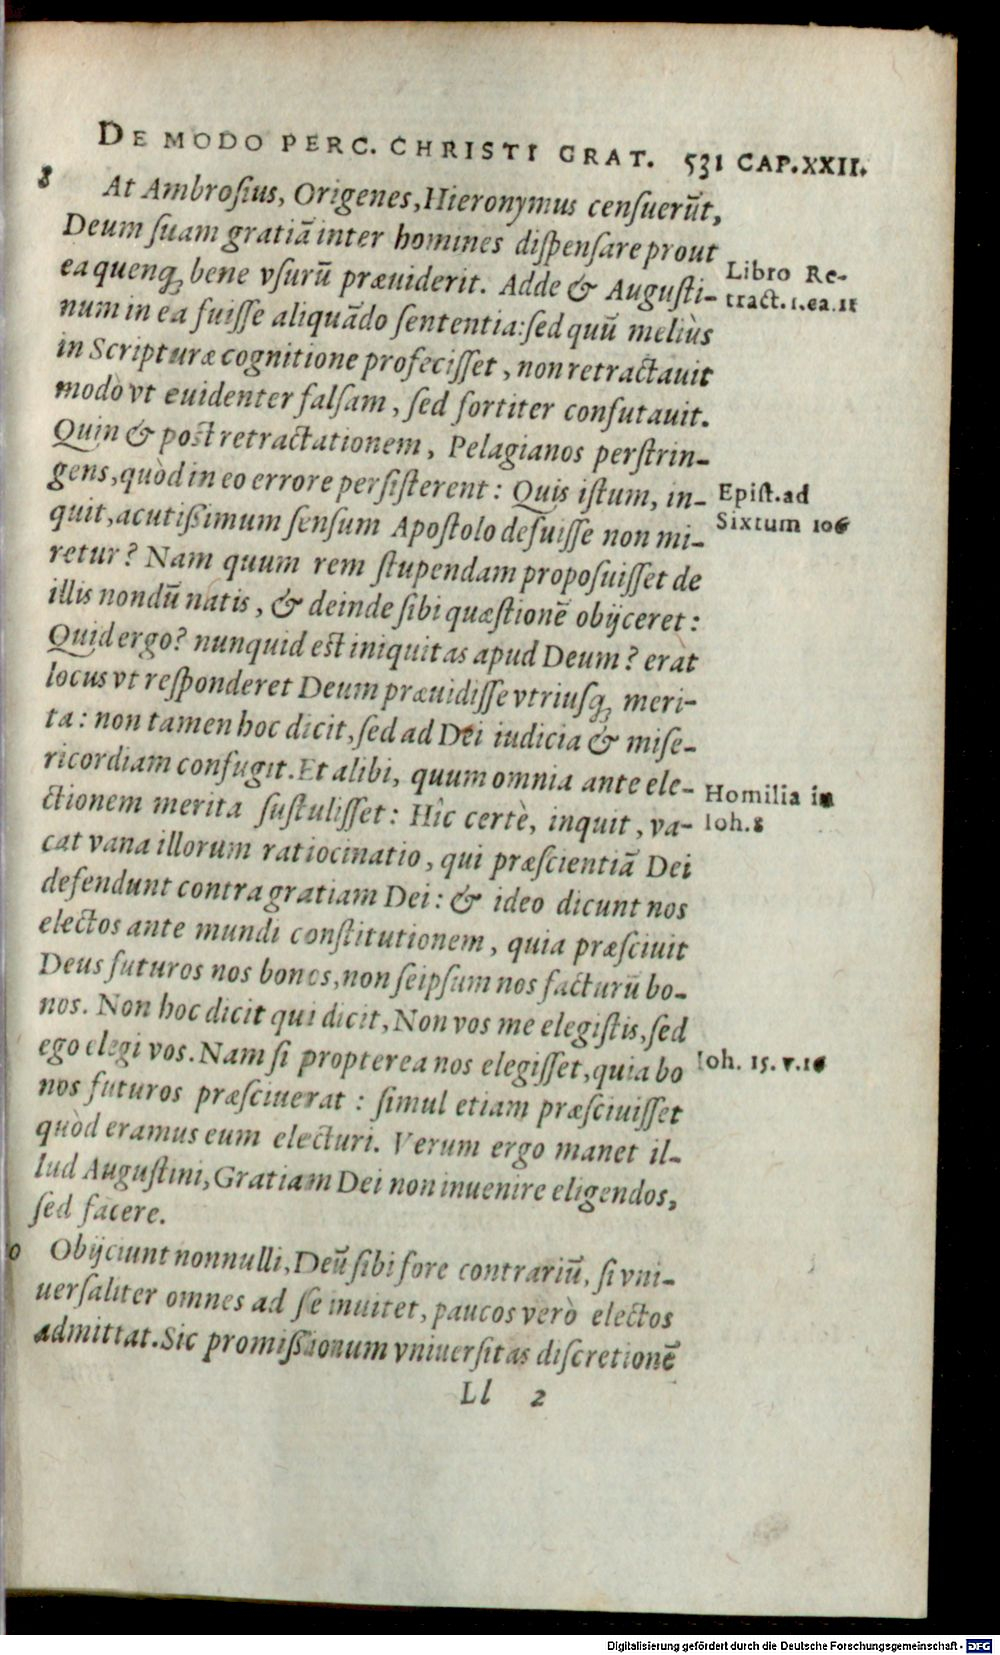 DE MODO PERC. CHRISTI GRAT. 531 CAP.XXII.
8 At Ambroſius, Origenes, Hieronymus cenſuerūt,
Deum ſuam gratiā inter homines diſpenſare prout
ea quenq; bene vſurū præuiderit. Adde & Auguſti-
Libro Re-
tract. 1.ca.11
num in ea fuiſſe aliquādo ſententia: ſed quū meliùs
in Scripturæ cognitione profeciſſet, non retractauit
modò vt euidenter falſam, ſed fortiter confutauit.
Quin & poſt retractationem, Pelagianos perſtrin-
gens, quòd in eo errore perſiſterent: Quis iſtum, in-
Epiſt. ad
Sixtum 106
quit, acutiſsimum ſenſum Apoſtolo defuiſſe non mi-
retur? Nam quum rem ſtupendam propoſuiſſet de
illis nondū natis, & deinde ſibi quæſtionē obijceret:
Quid ergo? nunquid eſt iniquitas apud Deum? erat
locus vt reſponderet Deum præuidiſſe vtriuſq; meri-
ta: non tamen hoc dicit, ſed ad Dei iudicia & miſe-
ricordiam confugit. Et alibi, quum omnia ante ele-
Homilia in
Ioh. 8
ctionem merita ſuſtuliſſet: Hîc certè, inquit, va-
cat vana illorum ratiocinatio, qui præſcientiā Dei
defendunt contra gratiam Dei: & ideo dicunt nos
electos ante mundi conſtitutionem, quia præſciuit
Deus futuros nos bonos, non ſeipſum nos facturū bo-
nos. Non hoc dicit qui dicit, Non vos me elegiſtis, ſed
ego elegi vos. Nam ſi propterea nos elegiſſet, quia bo
Ioh. 15. v.16
nos futuros præſciuerat: ſimul etiam præſciuiſſet
quòd eramus eum electuri. Verum ergo manet il-
lud Auguſtini, Gratiam Dei non inuenire eligendos,
ſed facere.
0 Obijciunt nonnulli, Deū ſibi fore contrariū, ſi vni-
uerſaliter omnes ad ſe inuitet, paucos verò electos
admittat. Sic promiſsionum vniuerſitas diſcretionē
Ll 2
Digitalisierung gefördert durch die Deutsche Forschungsgemeinschaft - DFG